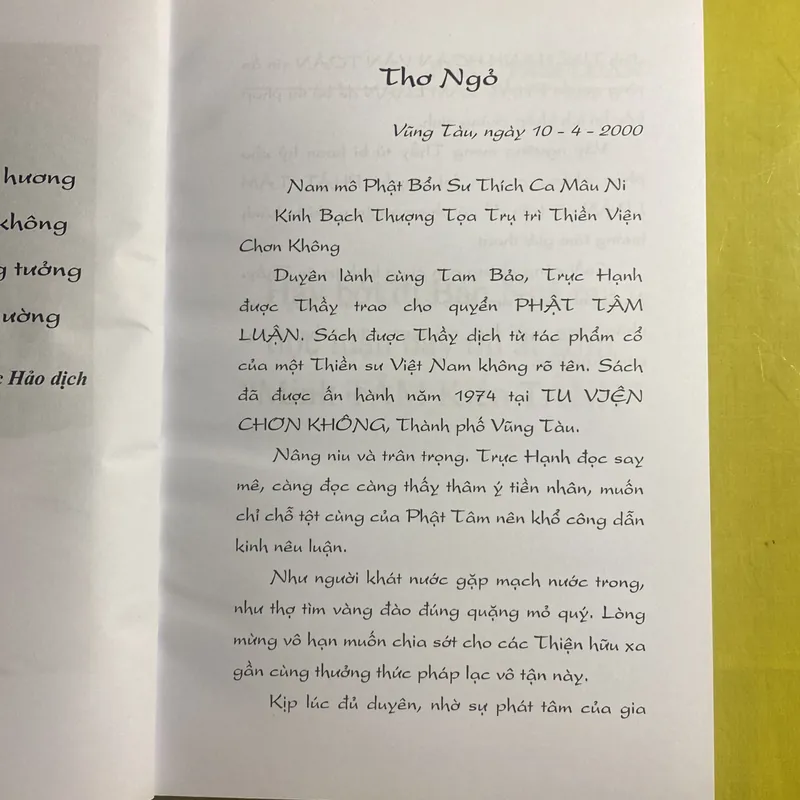 hương
không
tưởng
ường
Hảo dịch
Thơ Ngỏ
Vũng Tàu, ngày 10 - 4 - 2000
Nam mô Phật Bổn Sư Thích Ca Mâu Ni
Kính Bạch Thượng Tọa Trụ trì Thiền Viện
Chơn Không
Duyên lành cùng Tam Bảo, Trực Hạnh
được Thầy trao cho quyển PHẬT TÂM
LUẬN. Sách được Thầy dịch từ tác phẩm cổ
của một Thiền sư Việt Nam không rõ tên. Sách
đã được ấn hành năm 1974 tại TU VIỆN
CHƠN KHÔNG, Thành phố Vũng Tàu.
Nâng niu và trân trọng. Trực Hạnh đọc say
mê, càng đọc càng thấy thâm ý tiền nhân, muốn
chỉ chỗ tột cùng của Phật Tâm nên khổ công dẫn
kinh nêu luận.
Như người khát nước gặp mạch nước trong,
như thợ tìm vàng đào đúng quặng mỏ quý. Lòng
mừng vô hạn muốn chia sớt cho các Thiện hữu xa
gần cùng thưởng thức pháp lạc vô tận này.
Kịp lúc đủ duyên, nhờ sự phát tâm của gia